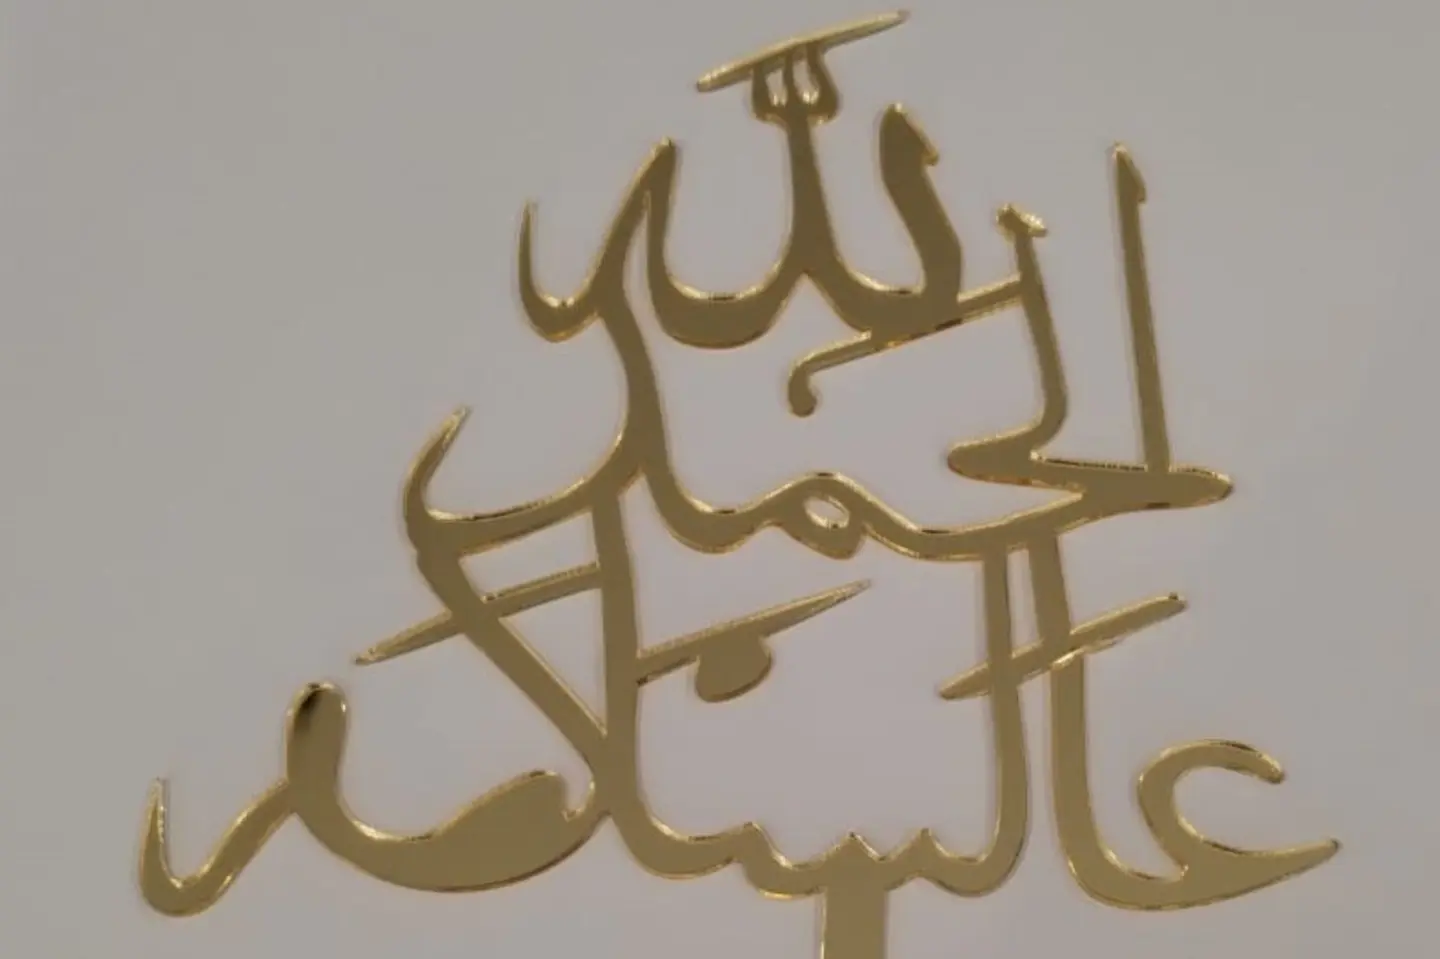 الحمد لله
عالسلامه